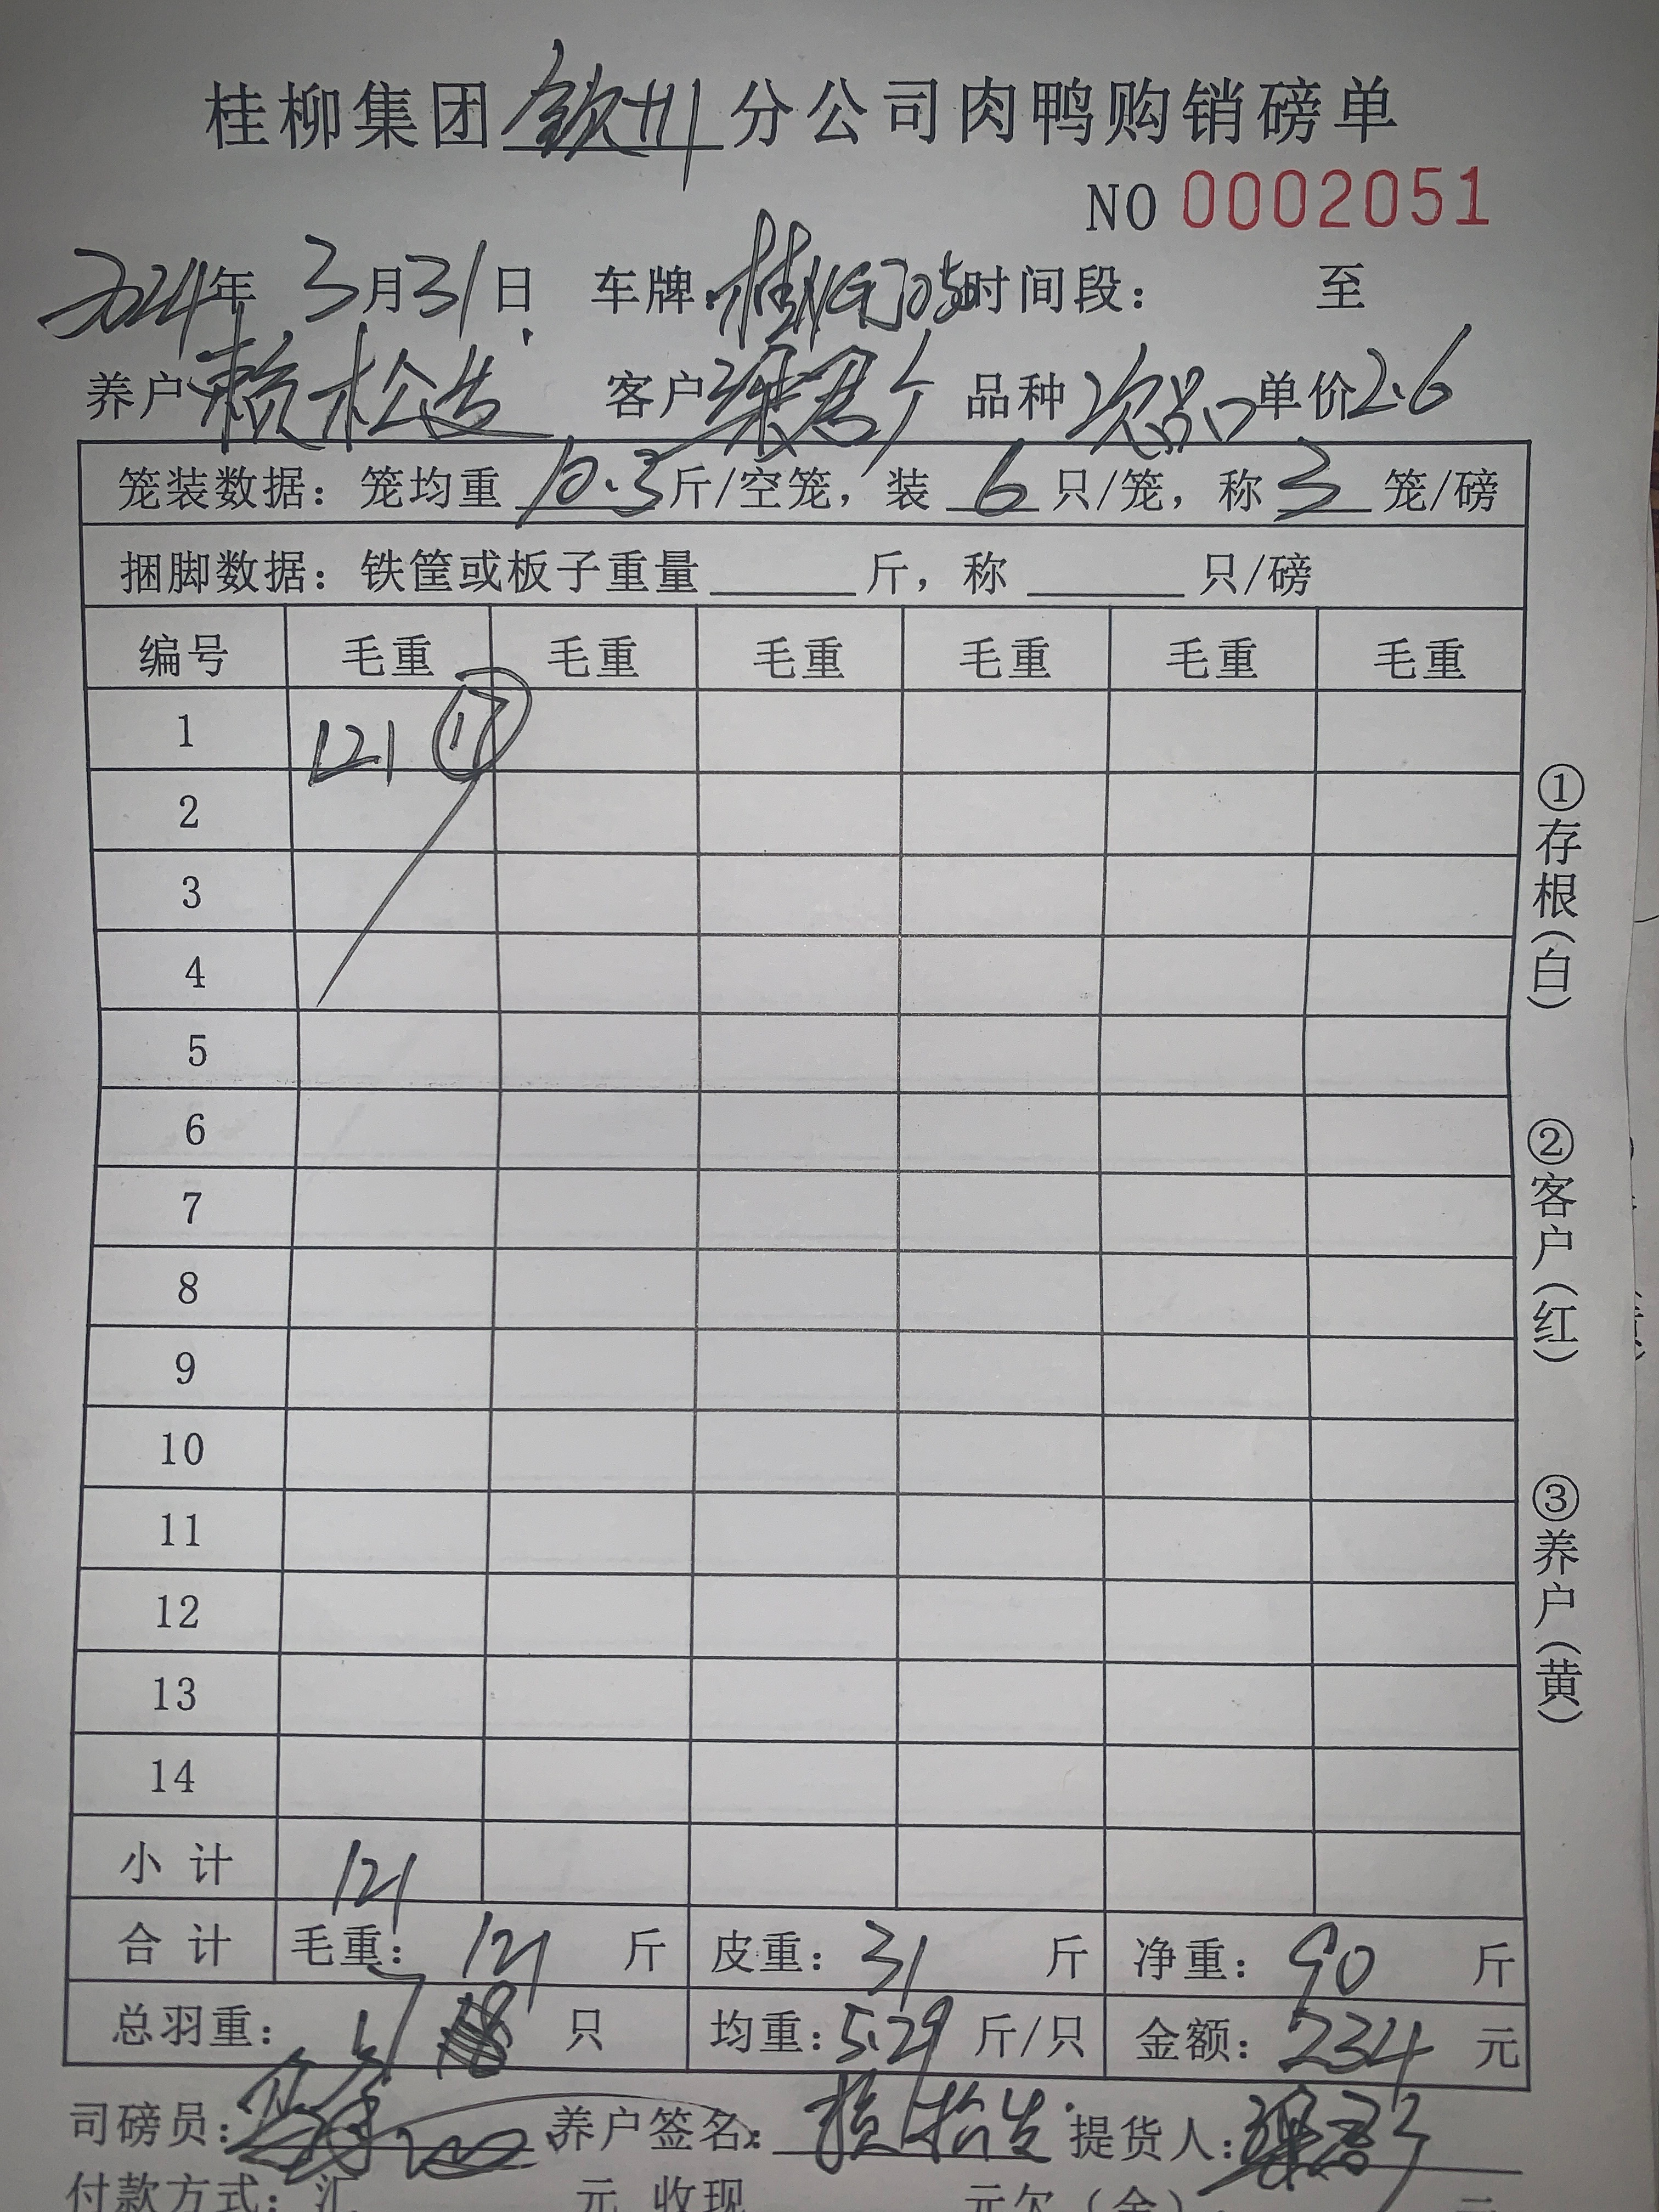 桂柳集团钦州分公司肉鸭购销磅单
NO 0002051
2024年 3月31日 车牌: 桂 时间段: 至
养户 赖松生 客户 梁君 品种 次品 单价 2.6
笼装数据: 笼均重 10.3 斤/空笼, 装 6 只/笼, 称 3 笼/磅
捆脚数据: 铁筐或板子重量 斤, 称 只/磅
编号 毛重 毛重 毛重 毛重 毛重 毛重
1 121 ⑰
2
3
4
5
6
7
8
9
10
11
12
13
14
小计 121
合计 毛重: 121 斤 皮重: 31 斤 净重: 90 斤
总羽重: 17 只 均重: 5.29 斤/只 金额: 234 元
司磅员: 养户签名: 赖松生 提货人: 梁君
付款方式: 汇 元 收现 元欠(余): 元
①存根(白)
②客户(红)
③养户(黄)